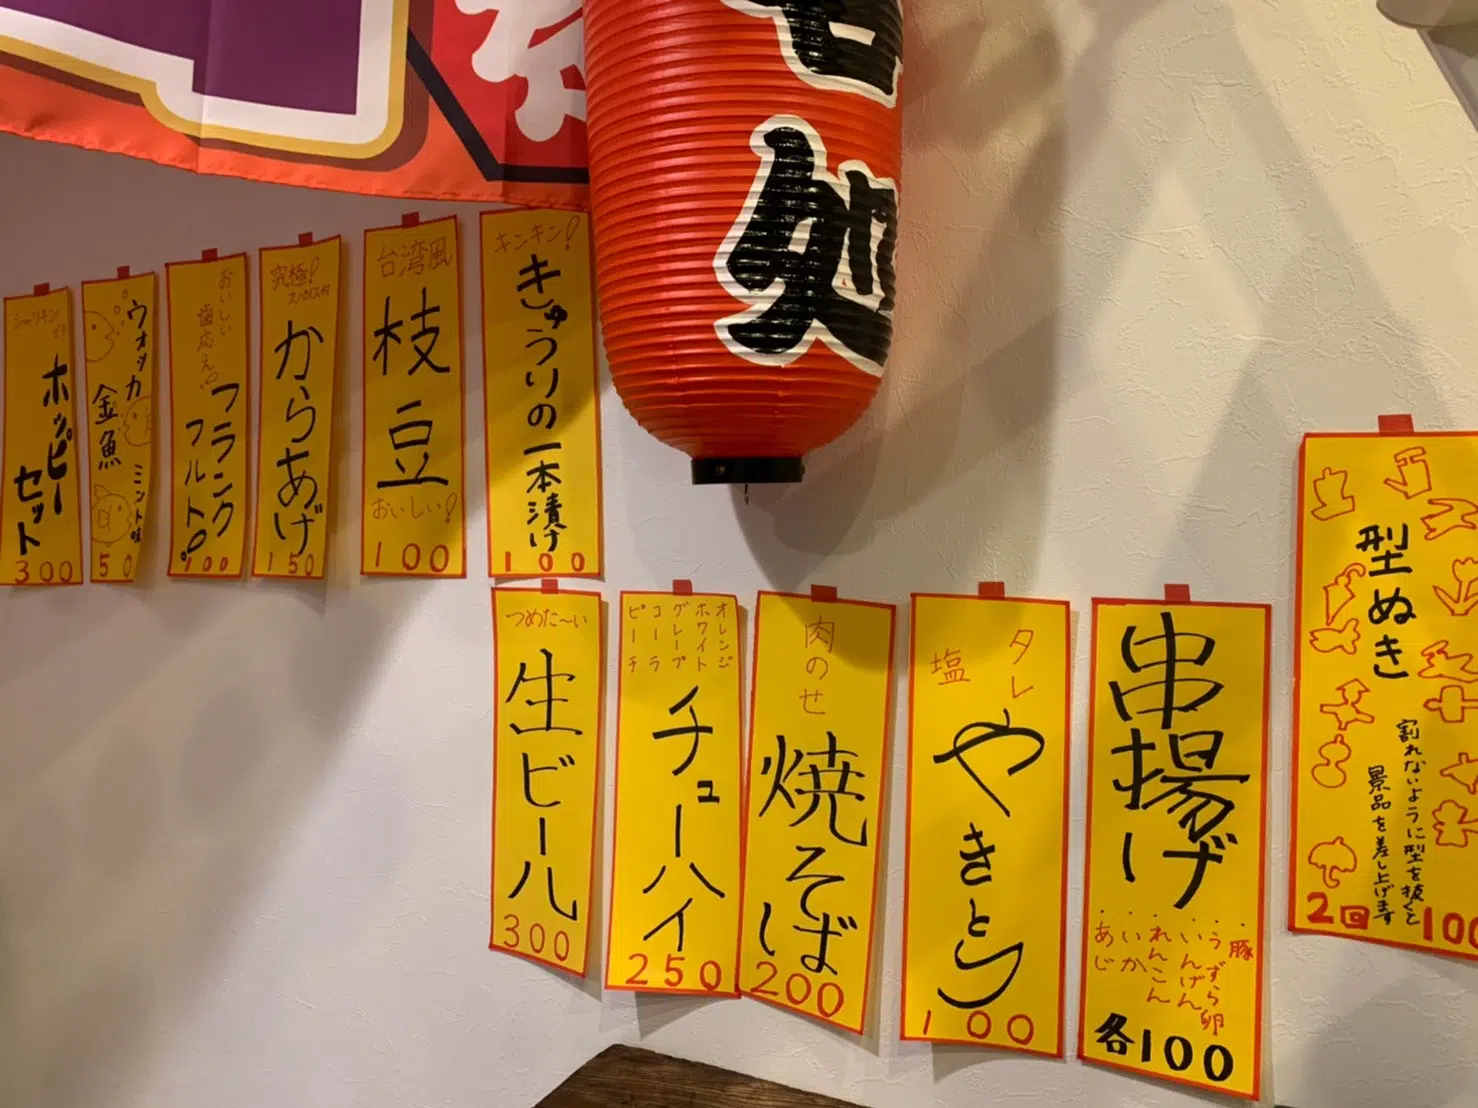 処
シャリキン
ホッピー
セット
300
ウオッカ
金魚
ミント味
50
おいしい
歯応え!
フランク
フルト!
100
究極!
スパイス付
からあげ
150
台湾風
枝豆
おいしい!
100
キンキン!
きゅうりの一本漬け
100
つめた〜い
生ビール
300
オレンジ
ホワイト
グレープ
コーラ
ピーチ
チューハイ
250
肉のせ
焼そば
200
タレ
塩
やきとり
100
串揚げ
・豚
・うずら卵
・いんげん
・れんこん
・いか
・あじ
各100
型ぬき
割れないように型を抜くと
景品を差し上げます
2回100